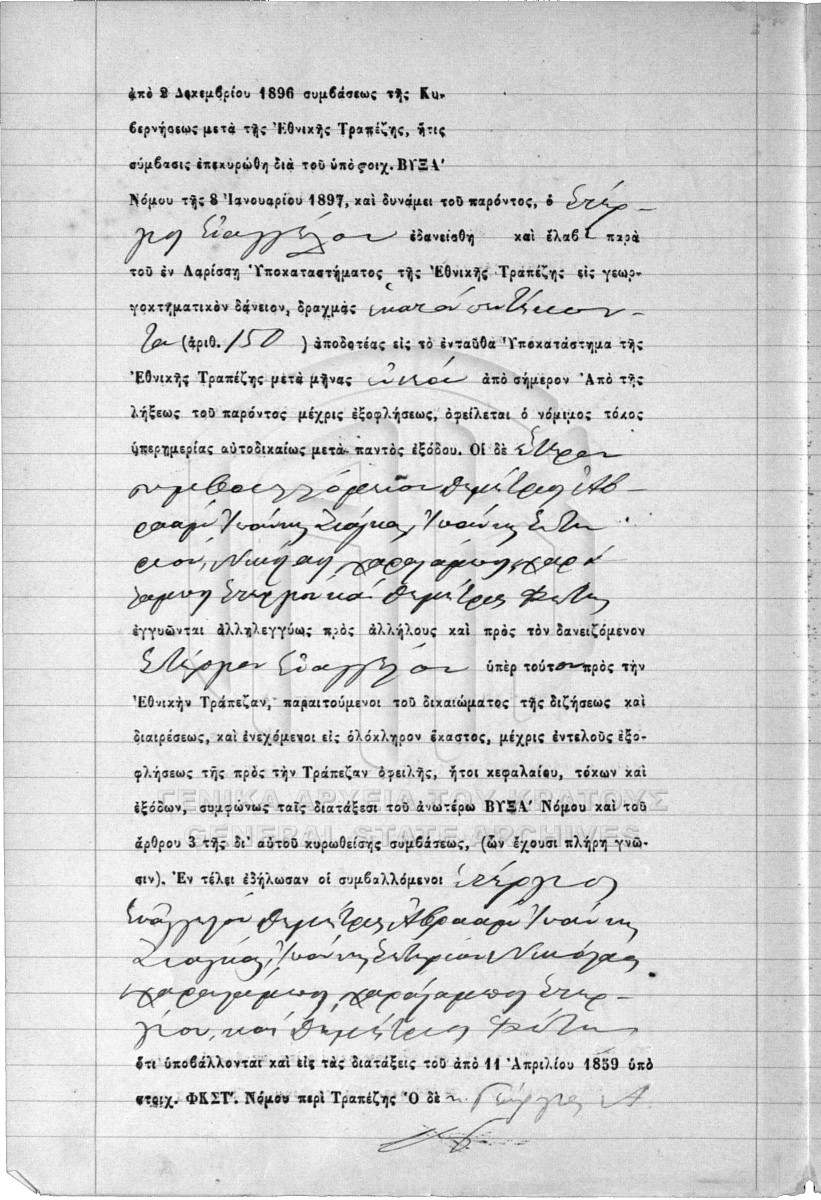 ἀπὸ 2 Δεκεμβρίου 1896 συμβάσεως τῆς Κυ-
βερνήσεως μετὰ τῆς Ἐθνικῆς Τραπέζης, ἥτις
σύμβασις ἐπεκυρώθη διὰ τοῦ ὑπὸ στοιχ. ΒΥΞΑʹ
Νόμου τῆς 8 Ἰανουαρίου 1897, καὶ δυνάμει τοῦ παρόντος, ὁ Στέρ-
γιος Εὐαγγέλου ἐδανείσθη καὶ ἔλαβε παρὰ
τοῦ ἐν Λαρίσσῃ Ὑποκαταστήματος τῆς Ἐθνικῆς Τραπέζης εἰς γεωρ-
γοκτηματικὸν δάνειον, δραχμὰς ἑκατὸν πεντήκον-
τα (ἀριθ. 150 ) ἀποδοτέας εἰς τὸ ἐνταῦθα Ὑποκατάστημα τῆς
Ἐθνικῆς Τραπέζης μετὰ μῆνας ὀκτὼ ἀπὸ σήμερον Ἀπὸ τῆς
λήξεως τοῦ παρόντος μέχρις ἐξοφλήσεως, ὀφείλεται ὁ νόμιμος τόκος
ὑπερημερίας αὐτοδικαίως μετὰ παντὸς ἐξόδου. Οἱ δὲ ἕτεροι
συμβαλλόμενοι Δημήτριος Ἀβ-
ραὰμ Ἰωάννης Ἰωάννης Σωτη
ρίου, Νικόλαος Χαραλάμπους, Χαρά
λαμπος Στεργίου καὶ Δημήτριος Φώτης
ἐγγυῶνται ἀλληλεγγύως πρὸς ἀλλήλους καὶ πρὸς τὸν δανειζόμενον
Στέργιον Εὐαγγέλου ὑπὲρ τούτου πρὸς τὴν
Ἐθνικὴν Τράπεζαν, παραιτούμενοι τοῦ δικαιώματος τῆς διζήσεως καὶ
διαιρέσεως, καὶ ἐνεχόμενοι εἰς ὁλόκληρον ἕκαστος, μέχρις ἐντελοῦς ἐξο-
φλήσεως τῆς πρὸς τὴν Τράπεζαν ὀφειλῆς, ἤτοι κεφαλαίου, τόκων καὶ
ΓΕΝΙΚΑ ΑΡΧΕΙΑ ΤΟΥ ΚΡΑΤΟΥΣ
ἐξόδων, συμφώνως ταῖς διατάξεσι τοῦ ἀνωτέρω ΒΥΞΑʹ Νόμου καὶ τοῦ
GENERAL STATE ARCHIVES
ἄρθρου 3 τῆς δι' αὐτοῦ κυρωθείσης συμβάσεως, (ὧν ἔχουσι πλήρη γνῶ-
σιν). Ἐν τέλει ἐδήλωσαν οἱ συμβαλλόμενοι Στέργιος
Εὐαγγέλου Δημήτριος Ἀβραὰμ Ἰωάννης
Ἰωάννης Σωτηρίου Νικόλαος
Χαραλάμπους, Χαράλαμπος Στερ-
γίου, καὶ Δημήτριος Φώτης
ὅτι ὑποβάλλονται καὶ εἰς τὰς διατάξεις τοῦ ἀπὸ 11 Ἀπριλίου 1859 ὑπὸ
στοιχ. ΦΚΣΤʹ. Νόμου περὶ Τραπέζης Ὁ δὲ κ. Γεώργιος Α